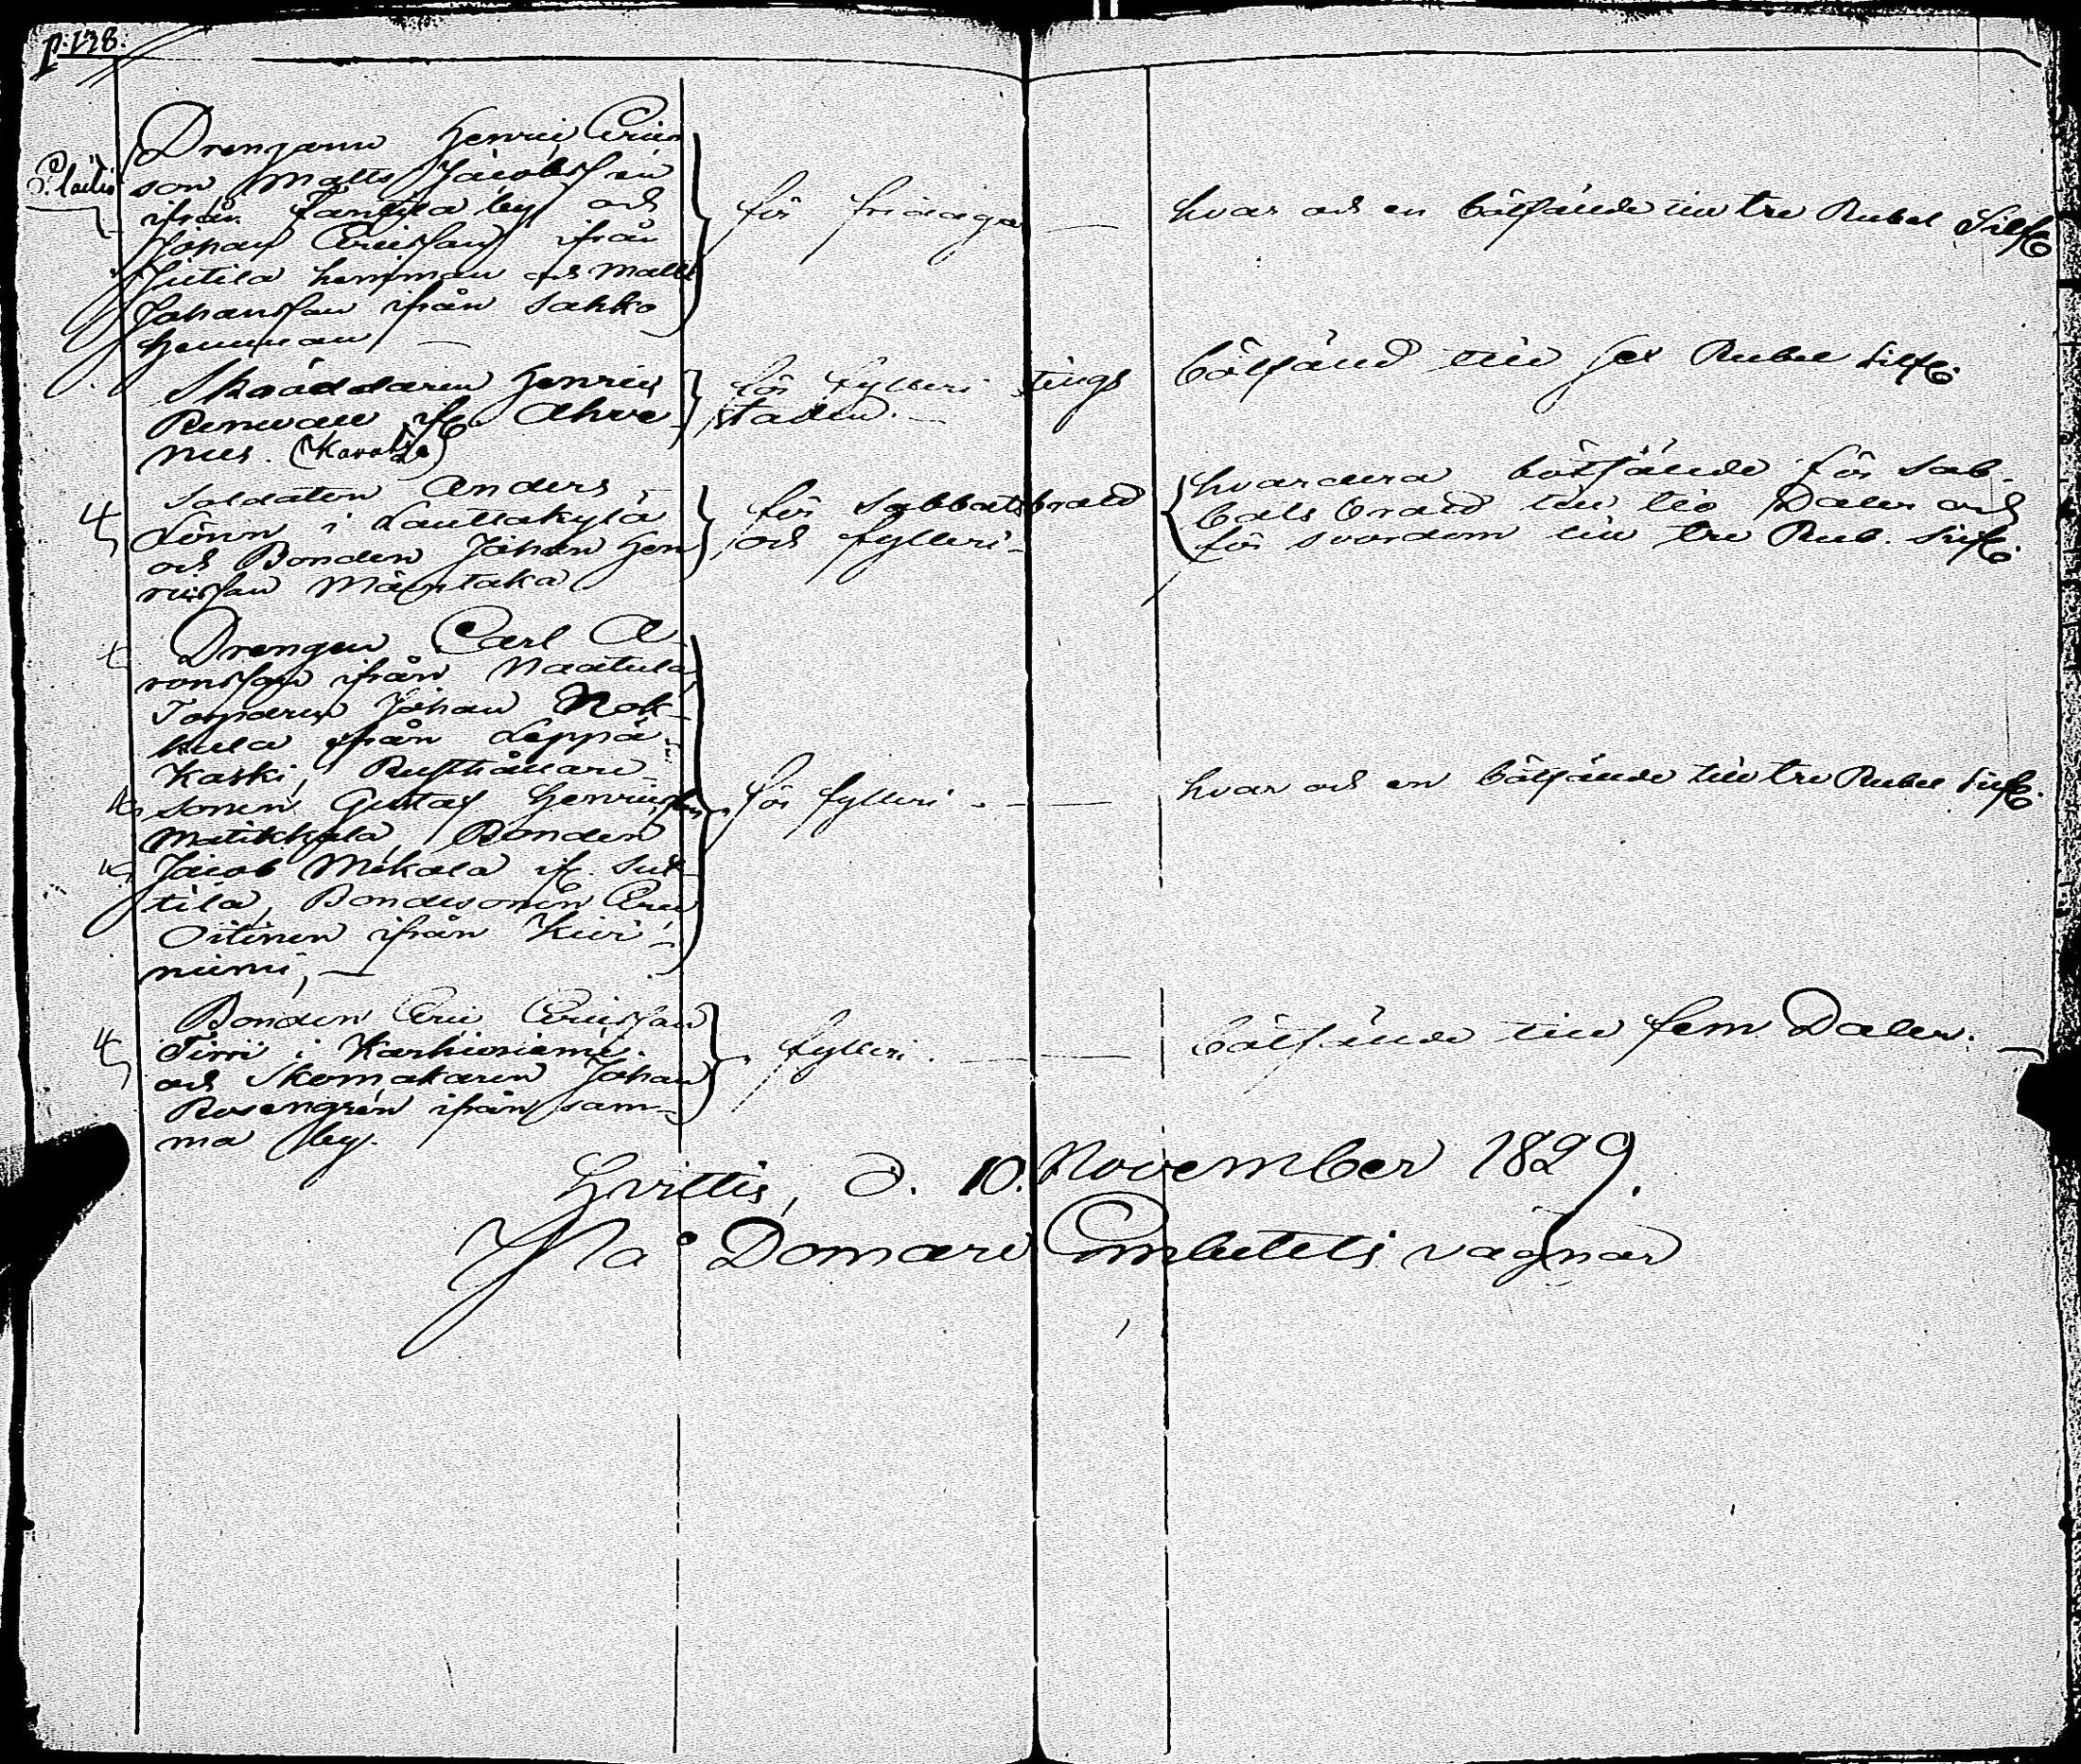 p. 138.
Drengarne Henric Erics
son Matts Jacobsson
ifrån by och
Johan Ericsson ifrån
Jutila hemman och Matts
Johansson ifrån Sakko
hemman
för
hvar och en bötfände till tre Rubel Silf
Skräddaren Henric
Renvall ifr Ahve
nus. (Karvola)
för fylleri tings
staden.
bötfänd till sex Rubel Silfr.
Soldaten Anders
Lönn i Lauttakylä
och Bonden Johan Hen
ricsson Mäentaka
för Sabbatsbrott
och fylleri
hvardera bötfände för Sab-
bats brott till tio Daler och
för svordom till tre Rub. Silfr.
Drengen Carl A
ronsson ifrån Naatula
Torparen Johan Nok-
kula ifrån Leppä-
Kaski, Rusthållare
sonen Gustaf Henricsson
Matikkala, Bonden
Jacob Mikola ifr. Sut
tila, Bondesonen Eric
Oitinen ifrån Kivi-
niemi,
för fylleri
hvar och en bötfände till tre Rubel Silfr.
Bonden Eric Ericsson
Tirri i Karhiniemi
och Skomakaren Johan
Rosengren ifrån sam-
ma by.
fylleri.
bötfände till fem Daler.
Hvittis, d. 10. November 1829.
På Domare Embetets vägnar